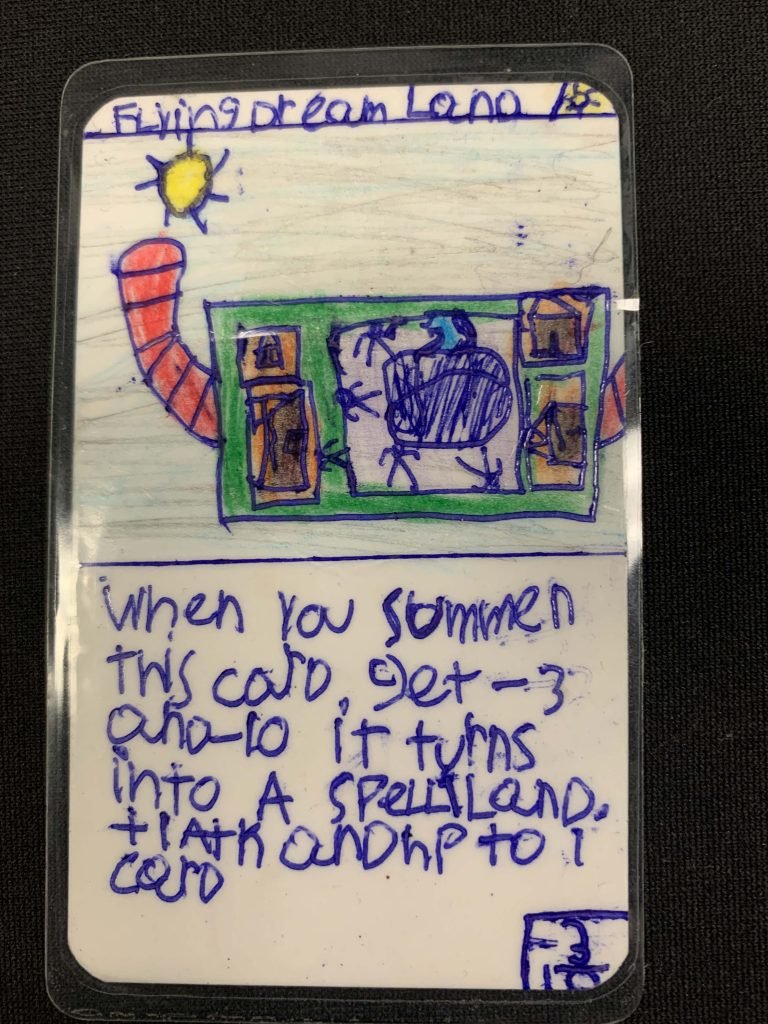 Flying Dream Land
When you summen
this card, get -3
and -10 it turns
into A SPell Land.
+1 Atk and hp to 1
card
-3
10